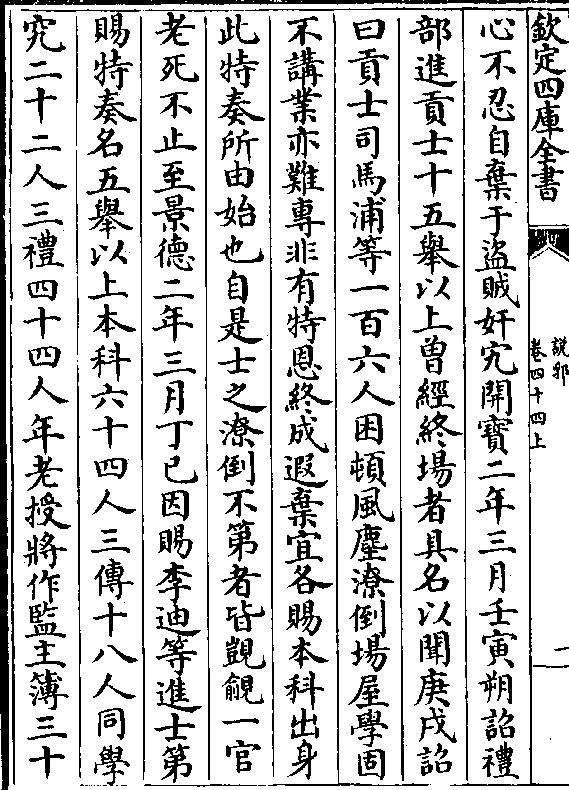 欽定四庫全書
說郛
卷四十四上
一
心不忍自棄于盜賊奸宄開寶二年三月壬寅朔詔禮
部進貢士十五舉以上曾經終場者具名以聞庚戌詔
曰貢士司馬浦等一百六人困頓風塵潦倒場屋學固
不講業亦難專非有特恩終成遐棄宜各賜本科出身
此特奏所由始也自是士之潦倒不第者皆覬覦一官
老死不止至景德二年三月丁巳因賜李迪等進士第
賜特奏名五舉以上本科六十四人三傳十八人同學
究二十二人三禮四十四人年老授將作監主簿三十